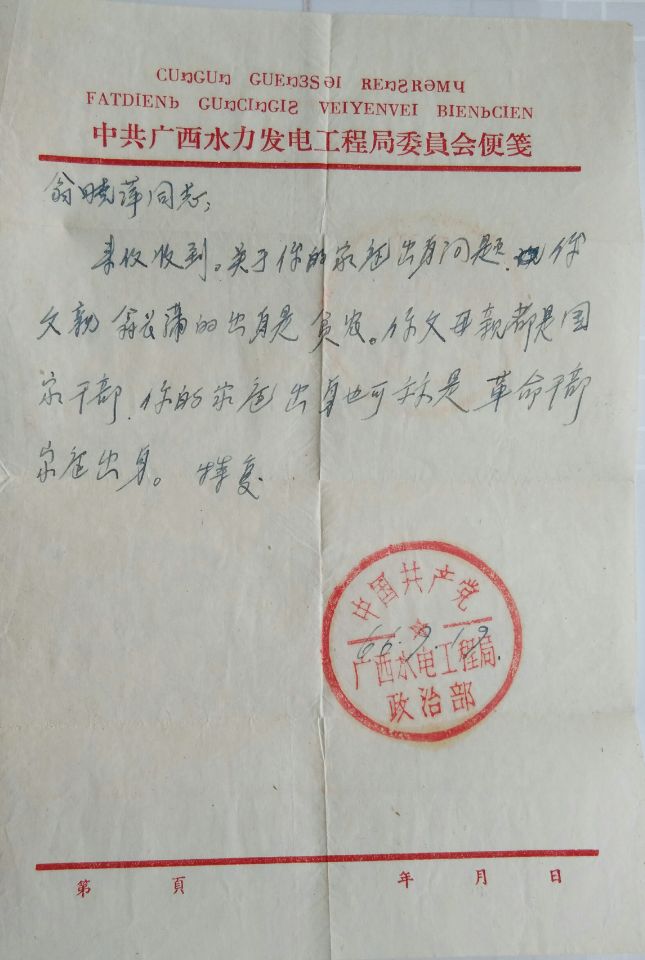 CUŊGUŊ GUEŊ3SƏI REŊƧRƏMЧ
FATDIENЬ GUŊCIŊGIƧ VEIYENVEI BIENЬCIEN
中共广西水力发电工程局委員会便笺
翁晓萍同志;
来收到。关于你的家庭出身问题,你
父亲翁 蒲的出身是贫农。你父母亲都是国
家干部,你的家庭出身也可 是革命干部
家庭出身。特复
中国共产党
66.9.19.
广西水电工程局
政治部
第 頁 年 月 日